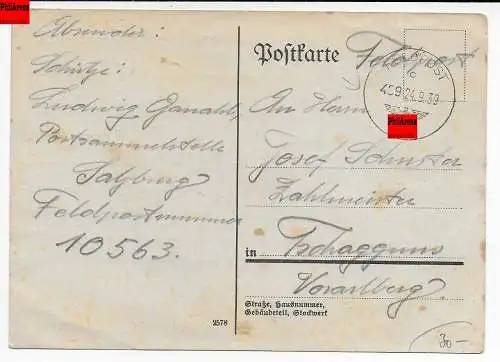 PhilArena
Absender:
Schütze:
Ludwig Ganahl,
Postsammelstelle
Salzburg
Feldpostnummer
10563.
Postkarte
Feldpost
FELDPOST
c
459 24.9.39
PhilArena
An Herrn
Josef Schuster
Zahlmeister
in Tschagguns
Vorarlberg.
Straße, Hausnummer,
Gebäudeteil, Stockwerk
2578
30-